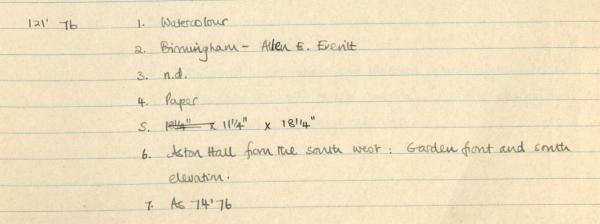 121' 76 1. Watercolour
2. Birmingham - Allen E. Everitt
3. n.d.
4. Paper
5. 18¼" x 11¼" x 18¼"
6. Aston Hall from the south west : Garden front and south
elevation.
7. As 74'76